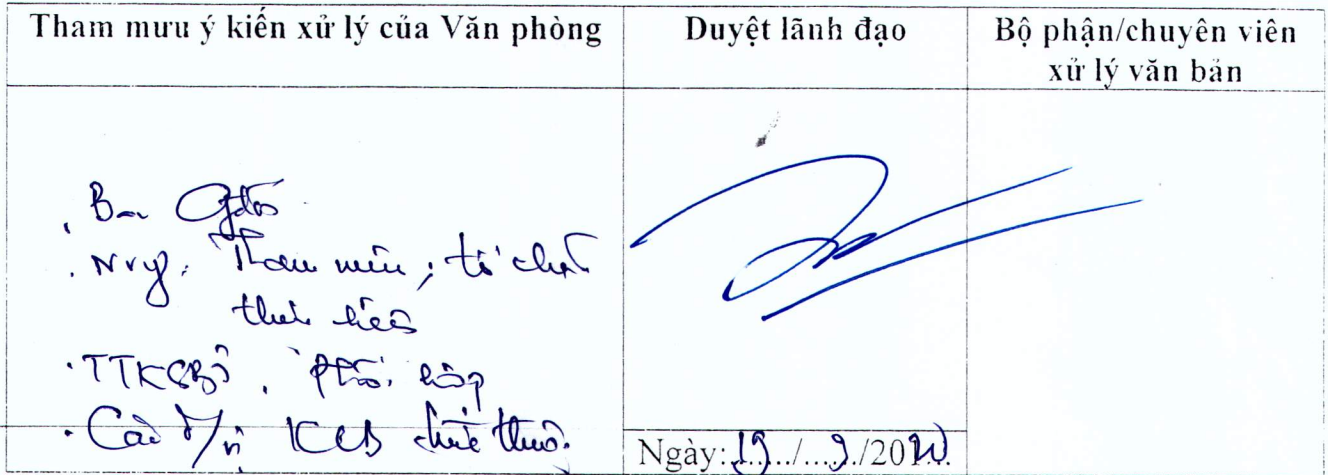 Tham mưu ý kiến xử lý của Văn phòng
Duyệt lãnh đạo
Bộ phận/chuyên viên
xử lý văn bản
. Ban Gđốc
. NVY: Tham mưu; tổ chức
thực hiện
. TTKSBT: Phối hợp
. Các đ/vị KCB trực thuộc.
Ngày: 19/9/20